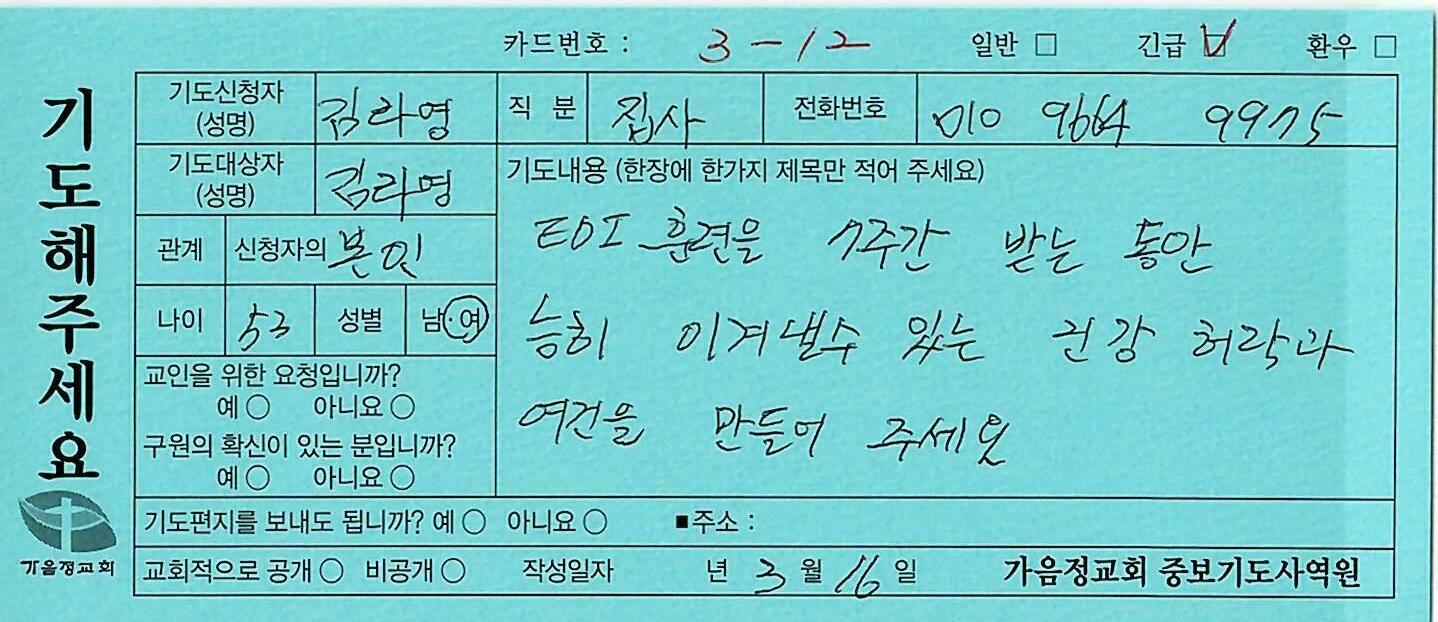 카드번호 : 3-12 일반 □ 긴급 ☑ 환우 □
기도해주세요
기도신청자 (성명) 김라영 직 분 집사 전화번호 010 9664 9975
기도대상자 (성명) 김라영
관계 신청자의 본인
나이 53 성별 남·여
교인을 위한 요청입니까?
예 ○ 아니요 ○
구원의 확신이 있는 분입니까?
예 ○ 아니요 ○
기도내용 (한장에 한가지 제목만 적어 주세요)
EDI 훈련을 7주간 받는 동안
능히 이겨낼수 있는 건강 허락과
여건을 만들어 주세요
기도편지를 보내도 됩니까? 예 ○ 아니요 ○ ■주소 :
교회적으로 공개 ○ 비공개 ○ 작성일자 년 3 월 16 일 가음정교회 중보기도사역원
가음정교회